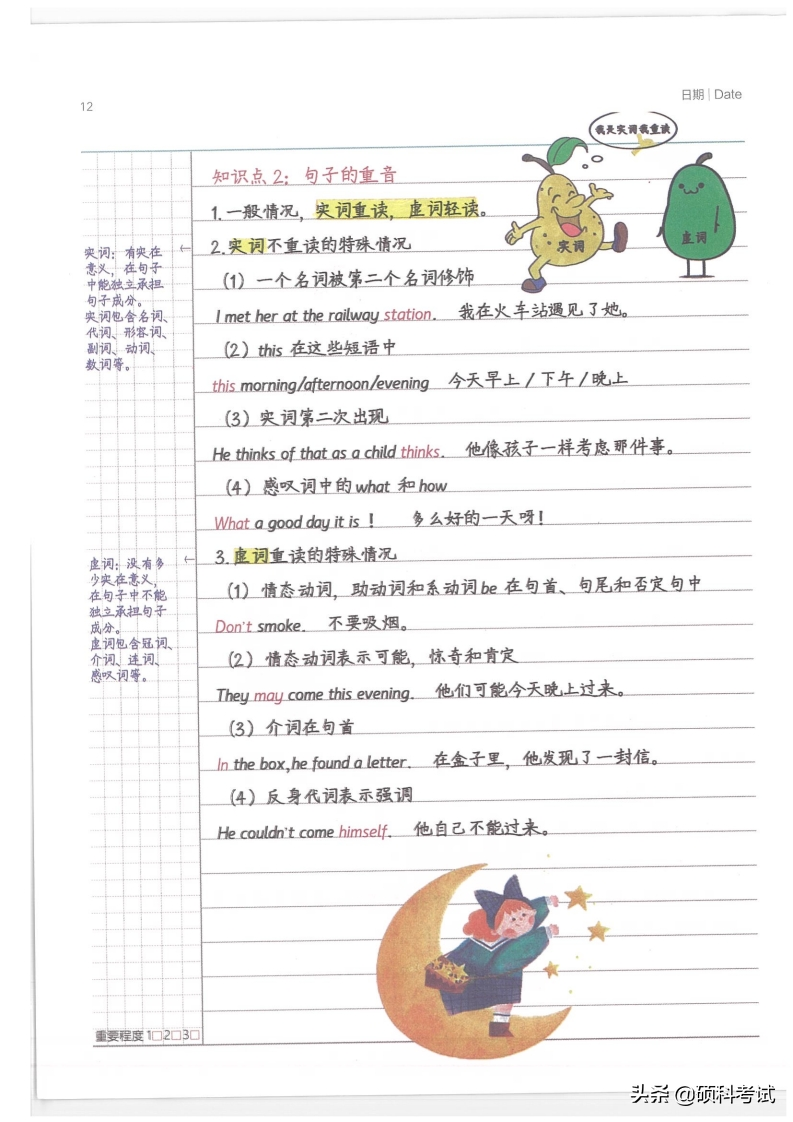 12
日期 | Date
我是实词我重读
实词
虚词
知识点 2：句子的重音
1. 一般情况，实词重读，虚词轻读。
2. 实词不重读的特殊情况
实词：有实在
意义，在句子
中能独立承担
句子成分。
实词包含名词、
代词、形容词、
副词、动词、
数词等。
（1）一个名词被第二个名词修饰
I met her at the railway station. 我在火车站遇见了她。
（2）this 在这些短语中
this morning/afternoon/evening 今天早上 / 下午 / 晚上
（3）实词第二次出现
He thinks of that as a child thinks. 他像孩子一样考虑那件事。
（4）感叹词中的 what 和 how
What a good day it is ！ 多么好的一天呀！
3. 虚词重读的特殊情况
虚词：没有多
少实在意义，
在句子中不能
独立承担句子
成分。
虚词包含冠词、
介词、连词、
感叹词等。
（1）情态动词，助动词和系动词 be 在句首、句尾和否定句中
Don't smoke. 不要吸烟。
（2）情态动词表示可能，惊奇和肯定
They may come this evening. 他们可能今天晚上过来。
（3）介词在句首
In the box,he found a letter. 在盒子里，他发现了一封信。
（4）反身代词表示强调
He couldn't come himself. 他自己不能过来。
重要程度 1□2□3□
头条 @硕科考试